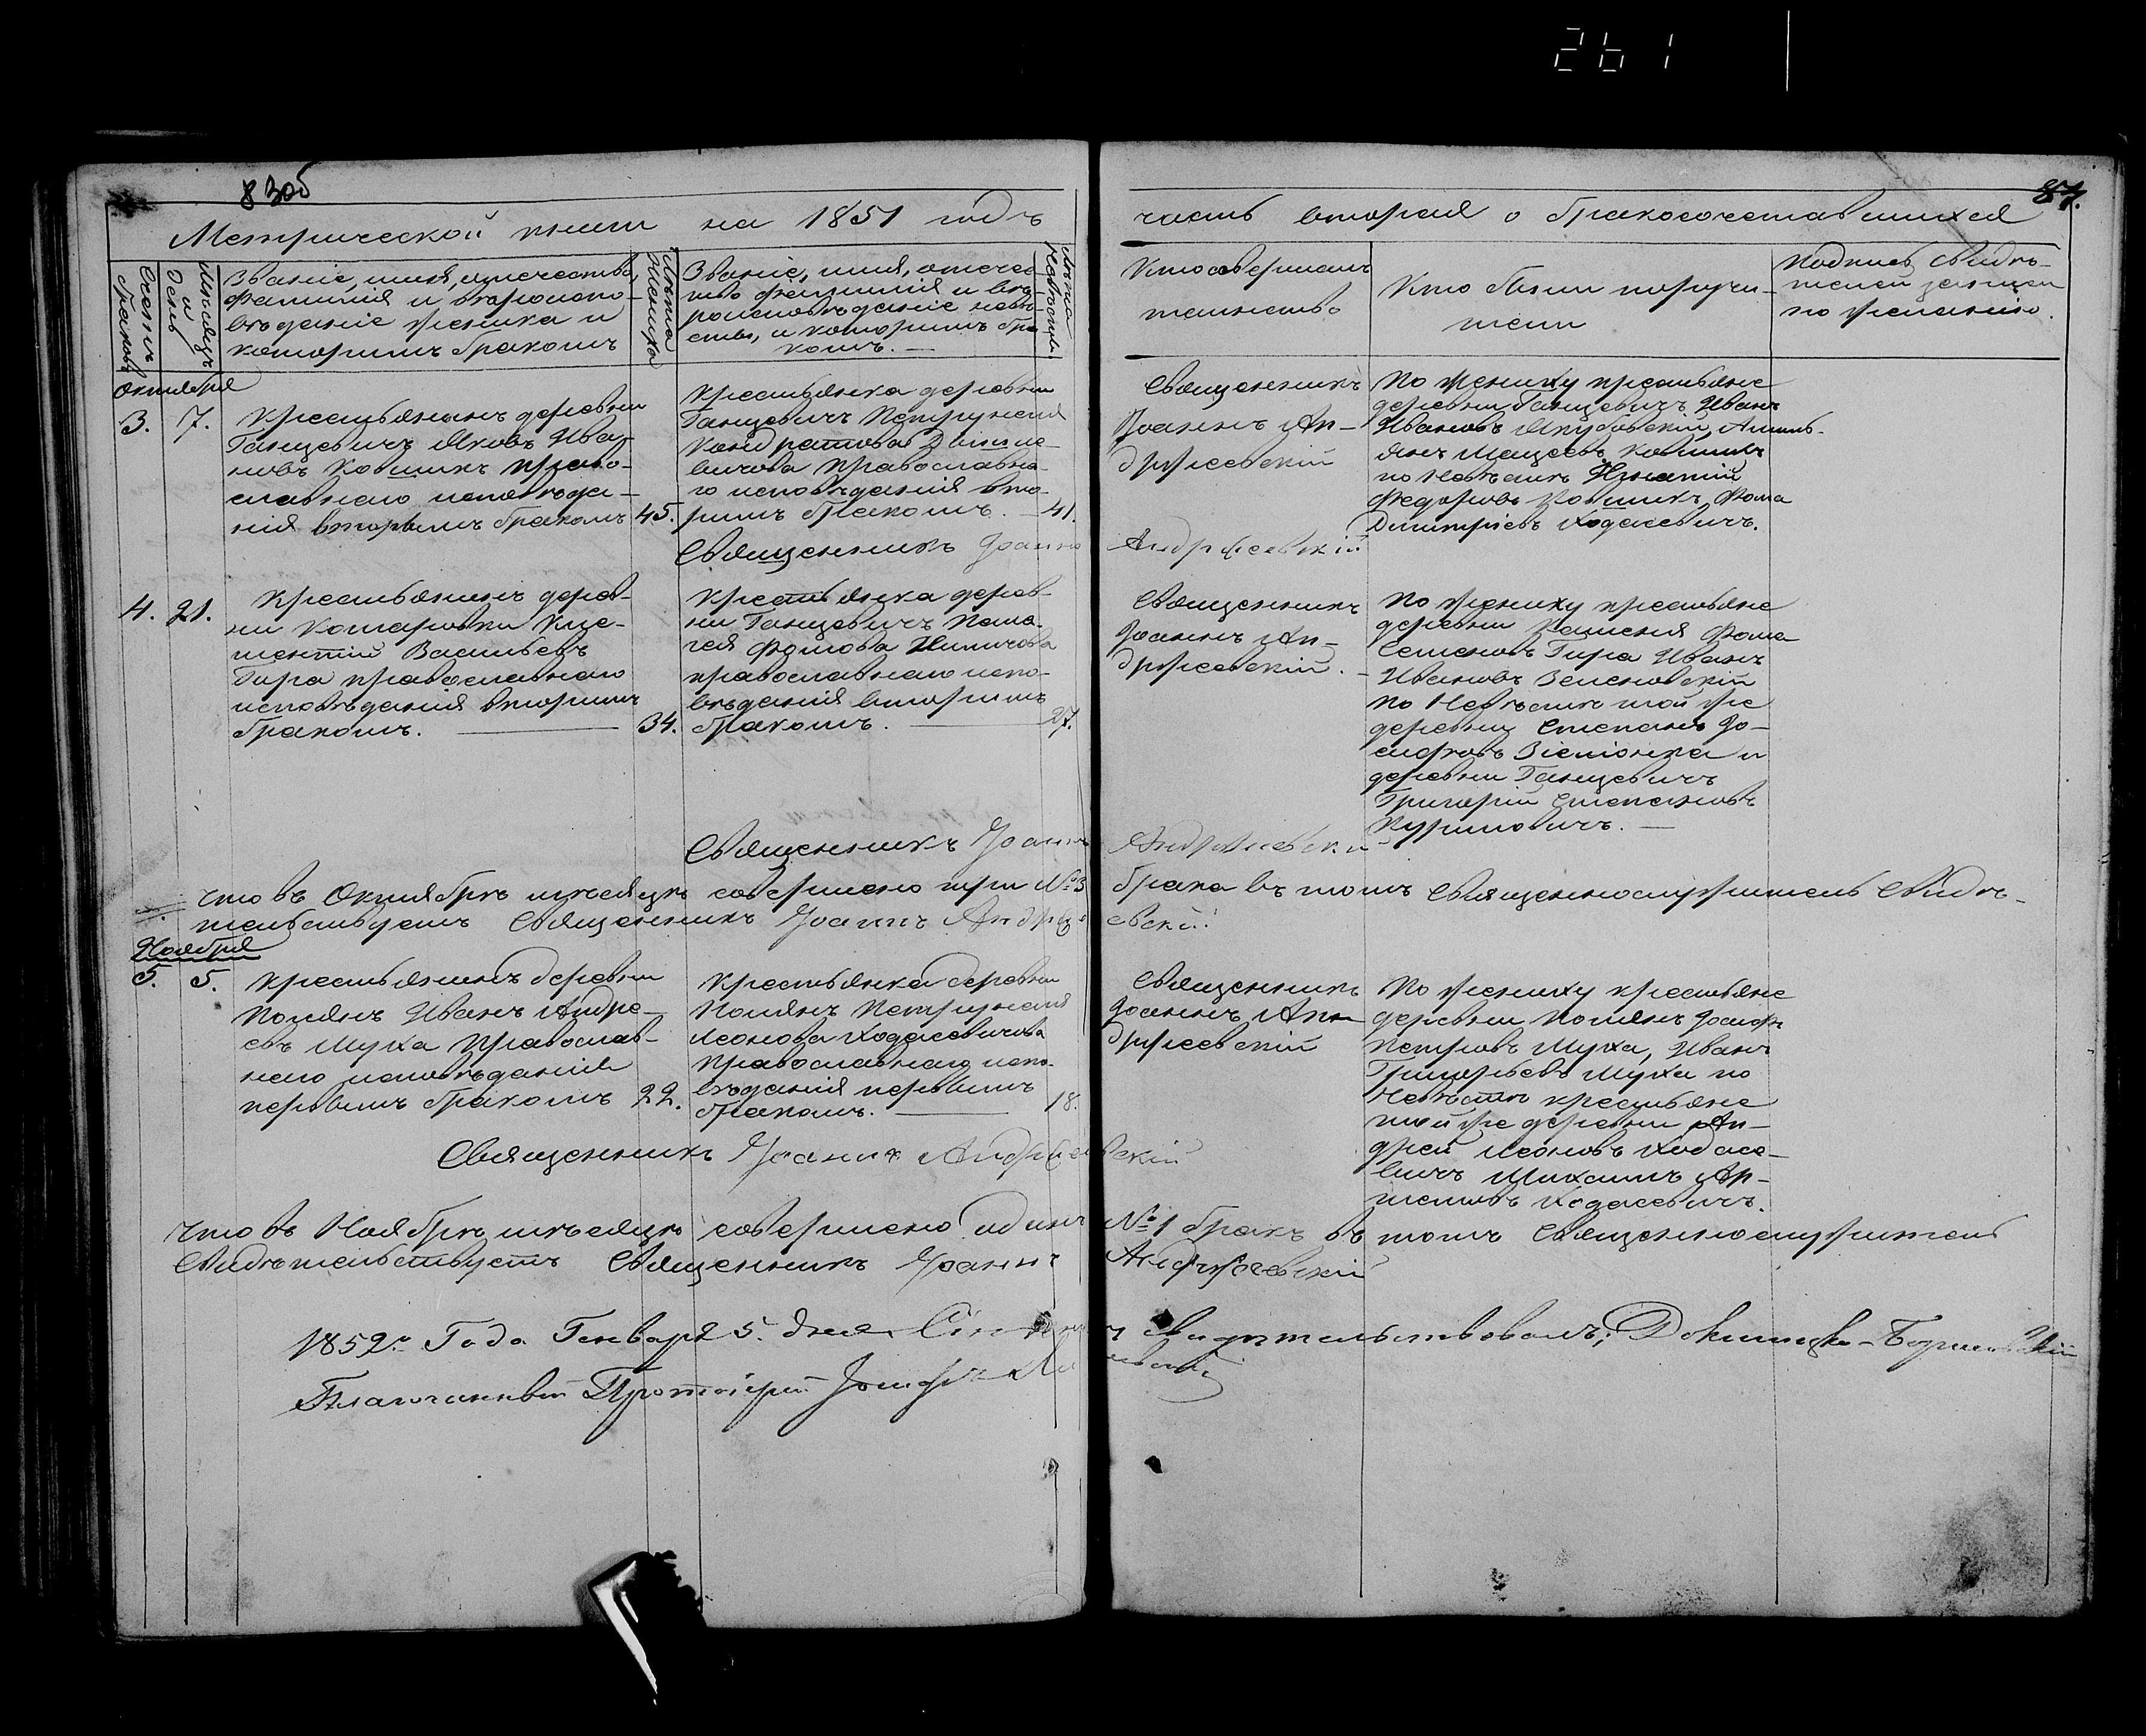 261
83об
87.
Метрической книги на 1851 годъ
часть вторая о бракосочетавшихся
Счетъ браковъ
Мѣсяцъ и День
Званіе, имя, отечество,
фамилія и вѣроиспо-
вѣданіе жениха и
которымъ бракомъ
Лѣта Жениха
Званіе, имя, отечес
тво фамилія и вѣ
роисповѣданіе невѣ
сты, и которымъ бра
комъ.
Лѣта Невѣсты
Кто совершалъ
таинство
Кто были поручи-
тели
Подпись свидѣ-
телей записи
по желанію.
Октября
3. 7.
Крестьянинъ деревни
Ганцевичъ Яковъ Ива-
новъ Ковшикъ право-
славнаго исповѣда-
нія вторымъ бракомъ 45.
Крестьянка деревни
Ганцевичъ Петрунеля
Кондратова
православна-
го исповѣданія вто-
рымъ бракомъ. 41.
Священникъ
Іоаннъ Ан-
држеевскій
По жениху крестьяне
деревни Ганцевичъ Иванъ
Ивановъ Якубовскій,
по Невѣстѣ Игнатій
Федоровъ Ковшикъ, Фома
Димитріевъ Ходасевичъ.
Священникъ Іоаннъ Андржеевскій
4. 21.
Крестьянинъ дерев-
ни Комаровки Кле-
ментій Васильевъ
Гира православнаго
исповѣданія вторымъ
бракомъ. 34.
Крестьянка дерев-
ни Ганцевичъ Пела-
гея Фомова
православнаго испо-
вѣданія вторымъ
бракомъ. 27.
Священникъ
Іоаннъ Ан-
држеевскій.
По жениху крестьяне
деревни Фома
Семеновъ Гира Иванъ
Ивановъ Зеленовскій
по Невѣстѣ той же
деревни Степанъ Іо-
сифовъ и
деревни Ганцевичъ
Григорій Степановъ
Куриловичъ.
Священникъ Іоаннъ Андржеевскій
Что въ Октябрѣ мѣсяцѣ совершено три №3 брака въ томъ священнослужитель свидѣ-
тельствуетъ Священникъ Іоаннъ Андржеевскій
Ноября
5. 5.
Крестьянинъ деревни
Полянъ Иванъ Андре-
евъ Муха православ-
наго исповѣданія
первымъ бракомъ 22.
Крестьянка деревни
Полянъ Петрунеля
Леонова Ходасевичова
православнаго испо-
вѣданія первымъ
бракомъ. 18.
Священникъ
Іоаннъ Ан-
држеевскій
По жениху крестьяне
деревни Полянъ Іосифъ
Петровъ Муха, Иванъ
Григорьевъ Муха по
Невѣстѣ крестьяне
той же деревни Ан-
дрей Леоновъ Ходасе-
вичъ Михаилъ Ар-
темовъ Ходасевичъ.
Священникъ Іоаннъ Андржеевскій
Что въ Ноябрѣ мѣсяцѣ совершено одинъ №1 бракъ въ томъ священнослужитель
Свидѣтельствуетъ Священникъ Іоаннъ Андржеевскій
1852го Года Генваря 5. дня свидѣтельствовалъ; Докшицко-Борисовскій
Благочинный Протоіерей Іосифъ